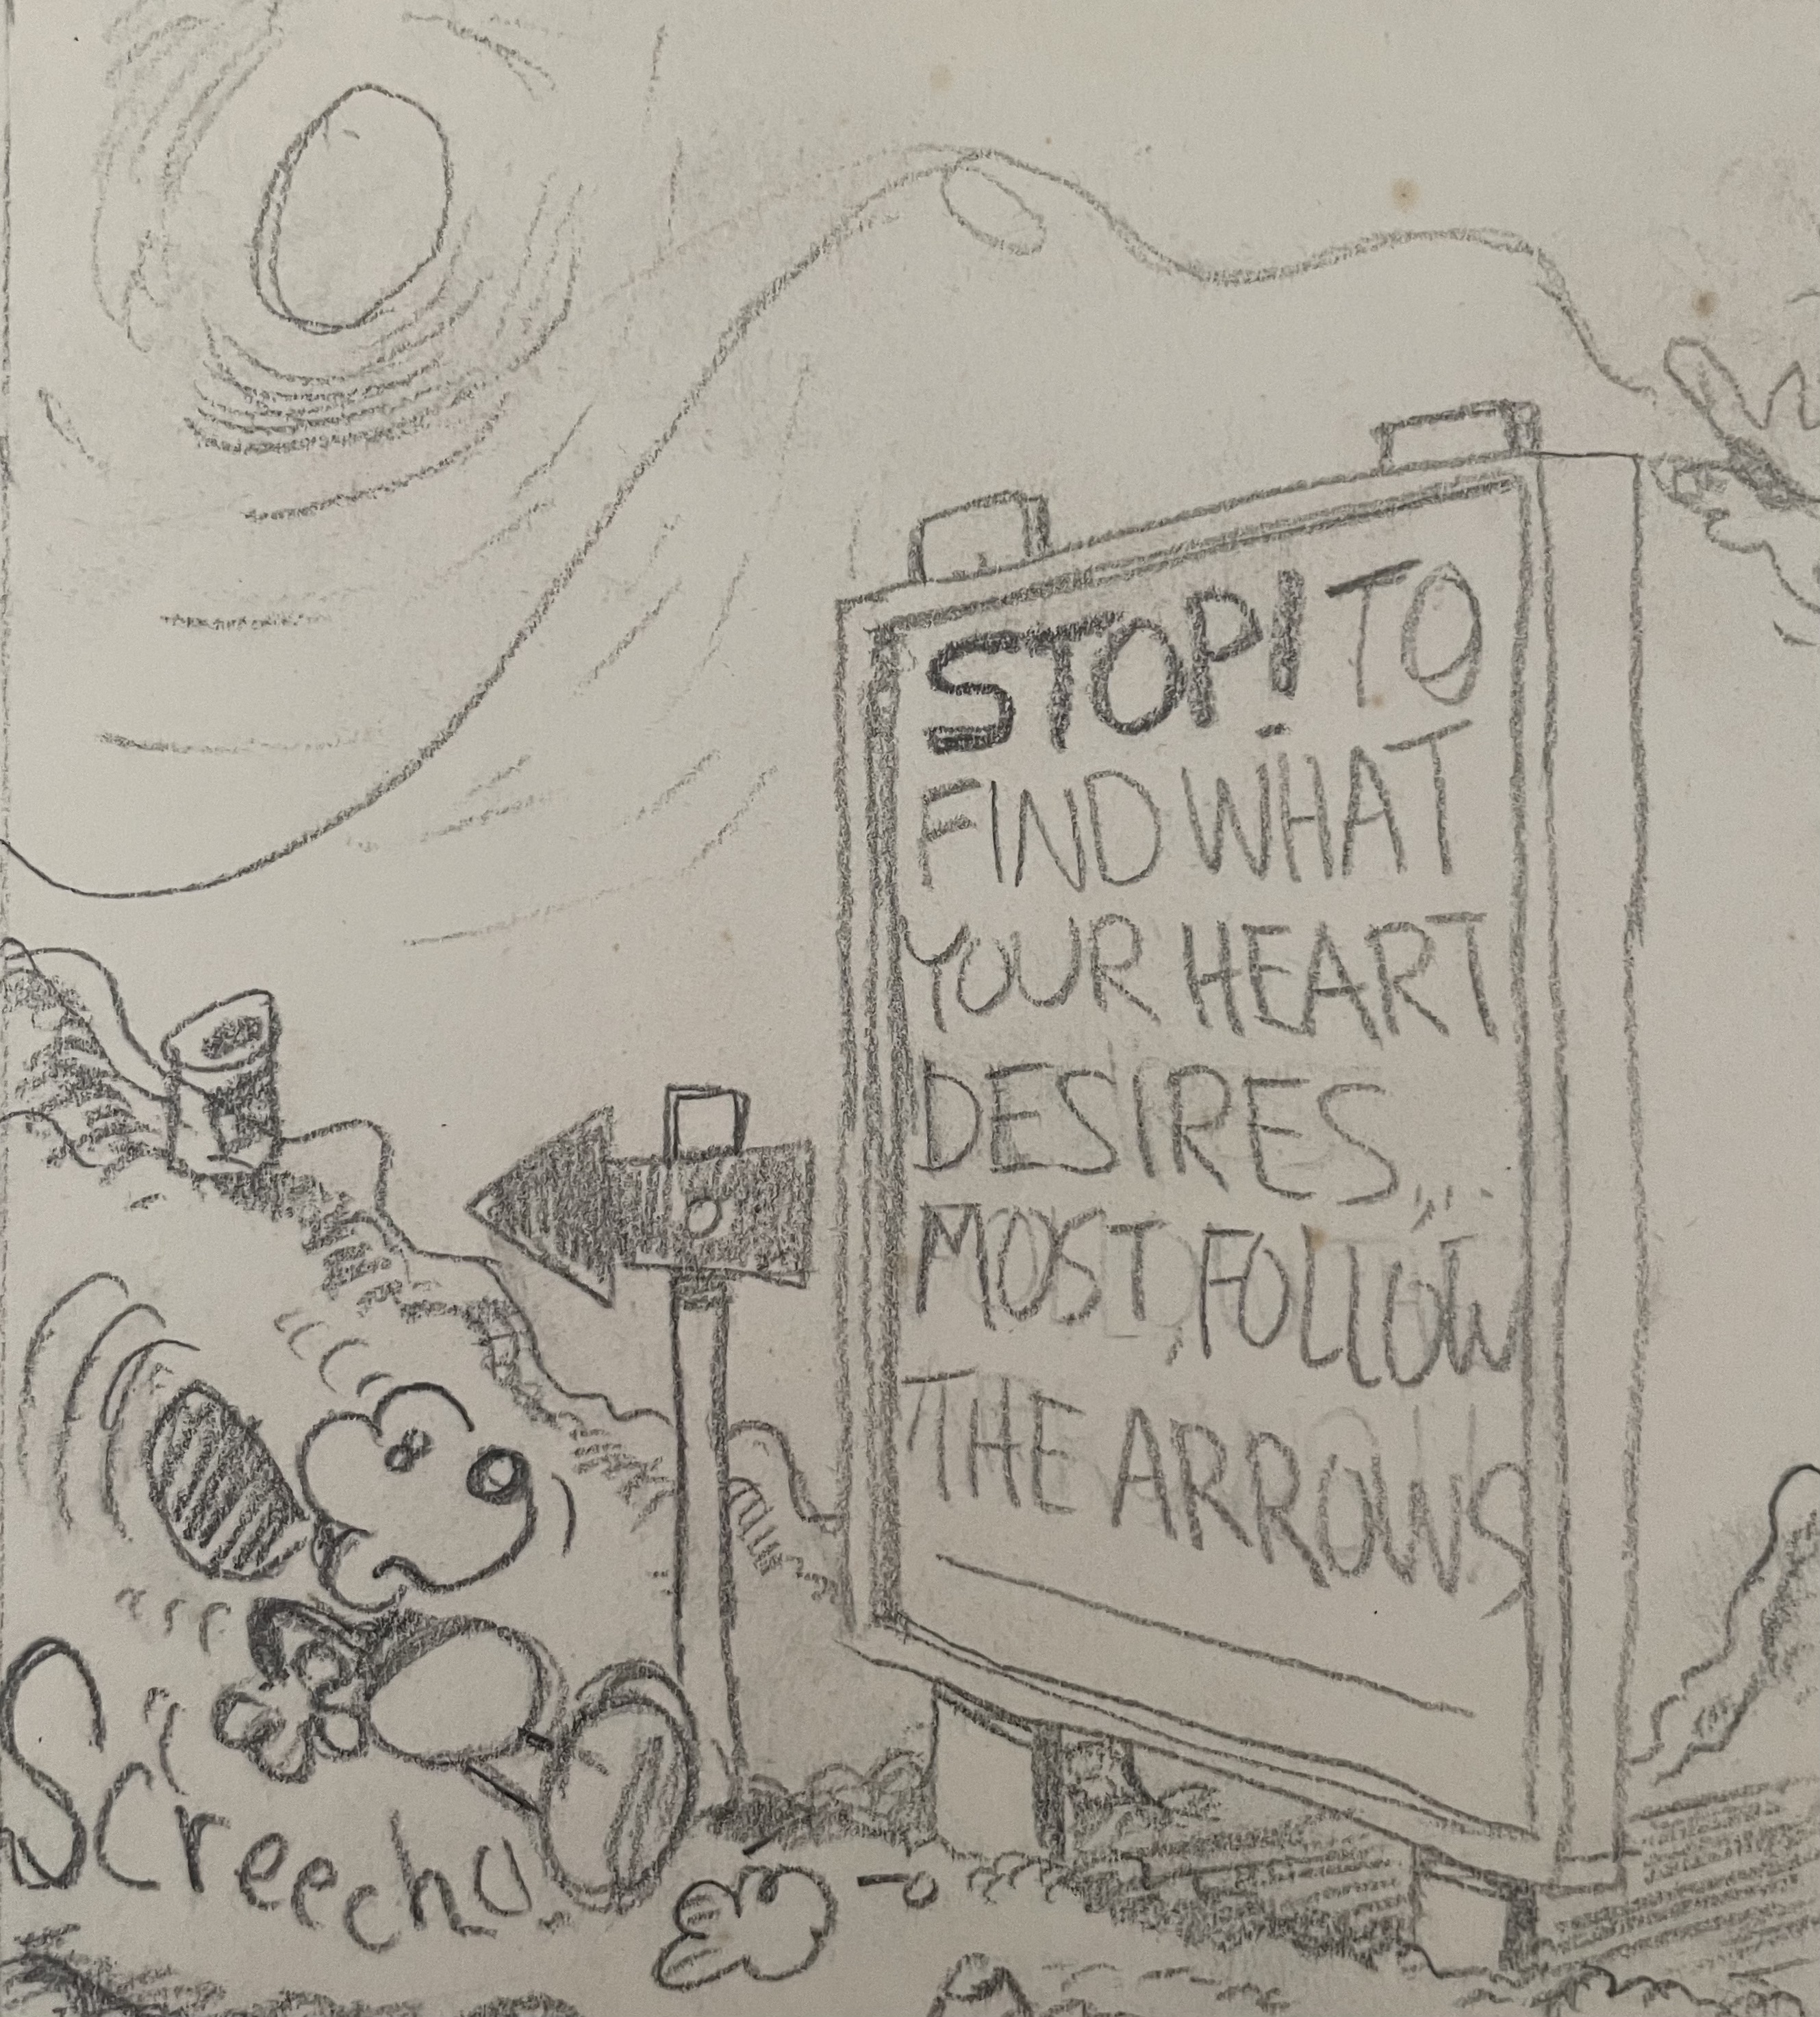 STOP! TO
FIND WHAT
YOUR HEART
DESIRES...
MOST, FOLLOW
THE ARROWS
Screecho